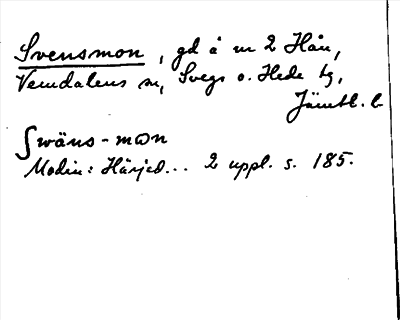 Svensmon, gd å nr 2 Hån,
Vemdalens sn, Svegs o. Hede tg,
Jämtl. l.
Swäns-mɷn
Modin: Härjed... 2 uppl. s. 185.